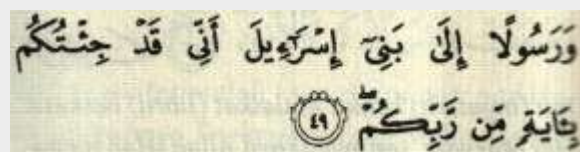 وَرَسُولًا إِلَىٰ بَنِىٓ إِسْرَٰٓءِيلَ أَنِّى قَدْ جِئْتُكُم
بِـَٔايَةٍ مِّن رَّبِّكُمْ ۖ ٤٩